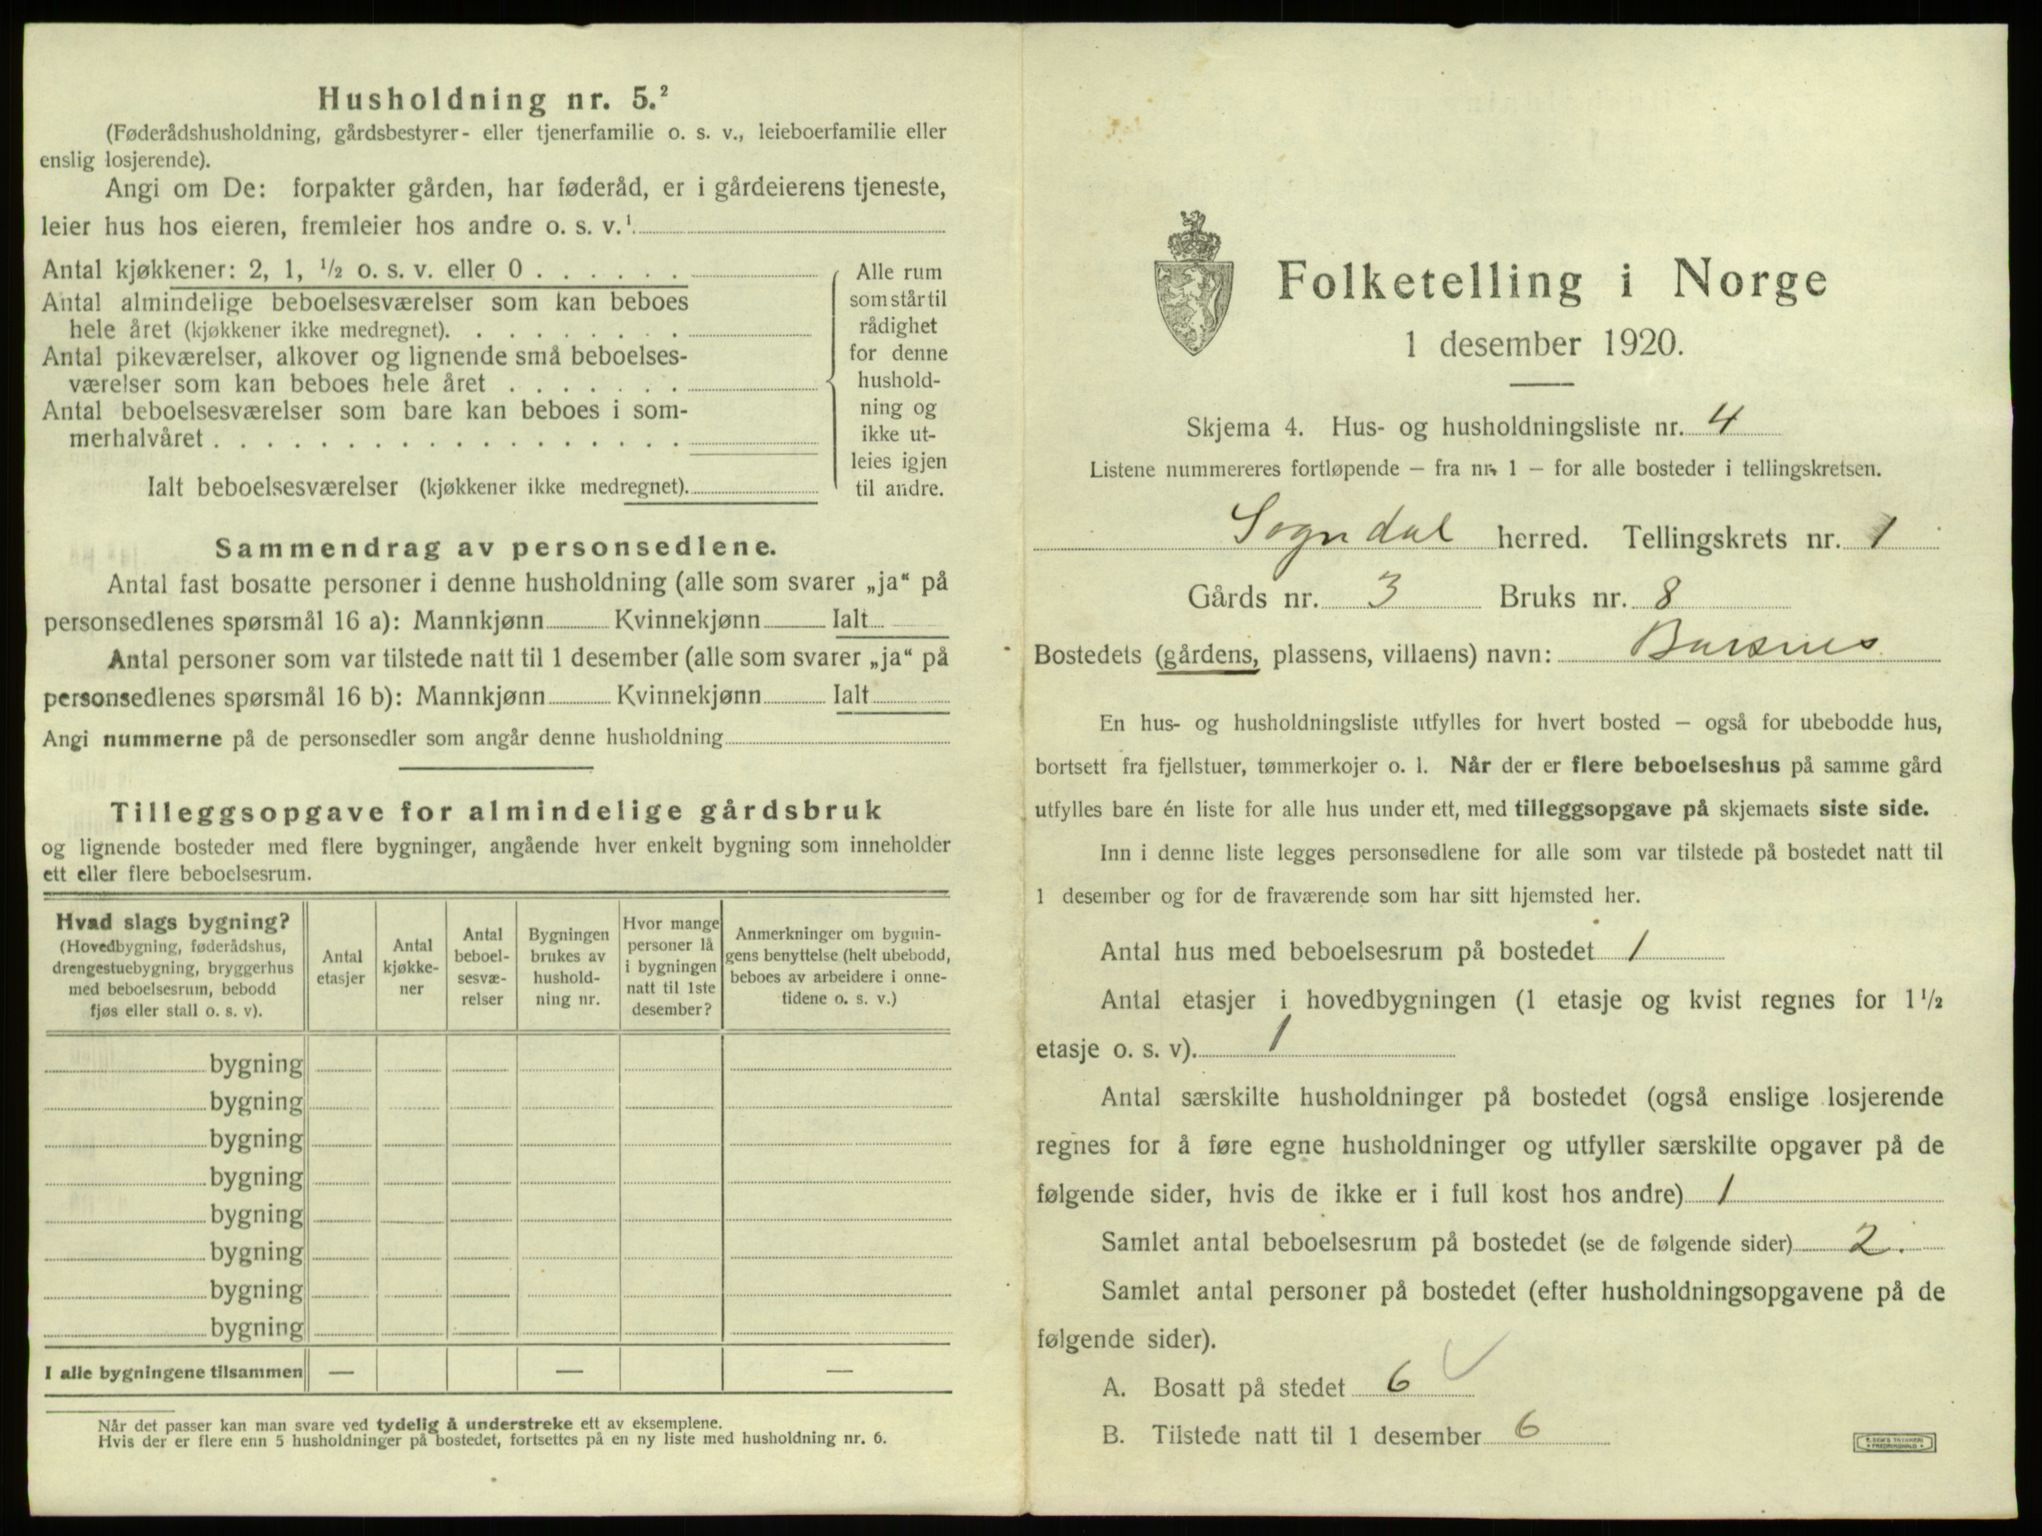 Husholdning nr. 5.²
(Føderådshusholdning, gårdsbestyrer- eller tjenerfamilie o. s. v., leieboerfamilie eller
enslig losjerende).
Angi om De: forpakter gården, har føderåd, er i gårdeierens tjeneste,
leier hus hos eieren, fremleier hos andre o. s. v.¹
Antal kjøkkener: 2, 1, ½ o. s. v. eller 0 . . . . . .
Antal almindelige beboelsesværelser som kan beboes
hele året (kjøkkener ikke medregnet). . . . . . . . .
Antal pikeværelser, alkover og lignende små beboelses-
værelser som kan beboes hele året . . . . . . .
Antal beboelsesværelser som bare kan beboes i som-
merhalvåret . . . . . . . . . . . . . . . . . .
Ialt beboelsesværelser (kjøkkener ikke medregnet).
Alle rum
som står til
rådighet
for denne
hushold-
ning og
ikke ut-
leies igjen
til andre.
Sammendrag av personsedlene.
Antal fast bosatte personer i denne husholdning (alle som svarer „ja“ på
personsedlenes spørsmål 16 a): Mannkjønn Kvinnekjønn Ialt
Antal personer som var tilstede natt til 1 desember (alle som svarer „ja“ på
personsedlenes spørsmål 16 b): Mannkjønn Kvinnekjønn Ialt
Angi nummerne på de personsedler som angår denne husholdning
Tilleggsopgave for almindelige gårdsbruk
og lignende bosteder med flere bygninger, angående hver enkelt bygning som inneholder
ett eller flere beboelsesrum.
Hvad slags bygning?
(Hovedbygning, føderådshus,
drengestuebygning, bryggerhus
med beboelsesrum, bebodd
fjøs eller stall o. s. v).
Antal
etasjer
Antal
kjøkke-
ner
Antal
beboel-
sesvæ-
relser
Bygningen
brukes av
hushold-
ning nr.
Hvor mange
personer lå
i bygningen
natt til 1ste
desember?
Anmerkninger om bygnin-
gens benyttelse (helt ubebodd,
beboes av arbeidere i onne-
tidene o. s. v.)
bygning
bygning
bygning
bygning
bygning
bygning
bygning
bygning
I alle bygningene tilsammen — — —
Når det passer kan man svare ved tydelig å understreke ett av eksemplene.
Hvis der er flere enn 5 husholdninger på bostedet, fortsettes på en ny liste med husholdning nr. 6.
Folketelling i Norge
1 desember 1920.
Skjema 4. Hus- og husholdningsliste nr. 4
Listene nummereres fortløpende – fra nr. 1 – for alle bosteder i tellingskretsen.
Sogndal herred. Tellingskrets nr. 1
Gårds nr. 3 Bruks nr. 8
Bostedets (gårdens, plassens, villaens) navn: Barsnes
En hus- og husholdningsliste utfylles for hvert bosted – også for ubebodde hus,
bortsett fra fjellstuer, tømmerkojer o. l. Når der er flere beboelseshus på samme gård
utfylles bare én liste for alle hus under ett, med tilleggsopgave på skjemaets siste side.
Inn i denne liste legges personsedlene for alle som var tilstede på bostedet natt til
1 desember og for de fraværende som har sitt hjemsted her.
Antal hus med beboelsesrum på bostedet 1
Antal etasjer i hovedbygningen (1 etasje og kvist regnes for 1 ½
etasje o. s. v). 1
Antal særskilte husholdninger på bostedet (også enslige losjerende
regnes for å føre egne husholdninger og utfyller særskilte opgaver på de
følgende sider, hvis de ikke er i full kost hos andre) 1
Samlet antal beboelsesrum på bostedet (se de følgende sider) 2.
Samlet antal personer på bostedet (efter husholdningsopgavene på de
følgende sider).
A. Bosatt på stedet 6
B. Tilstede natt til 1 desember 6